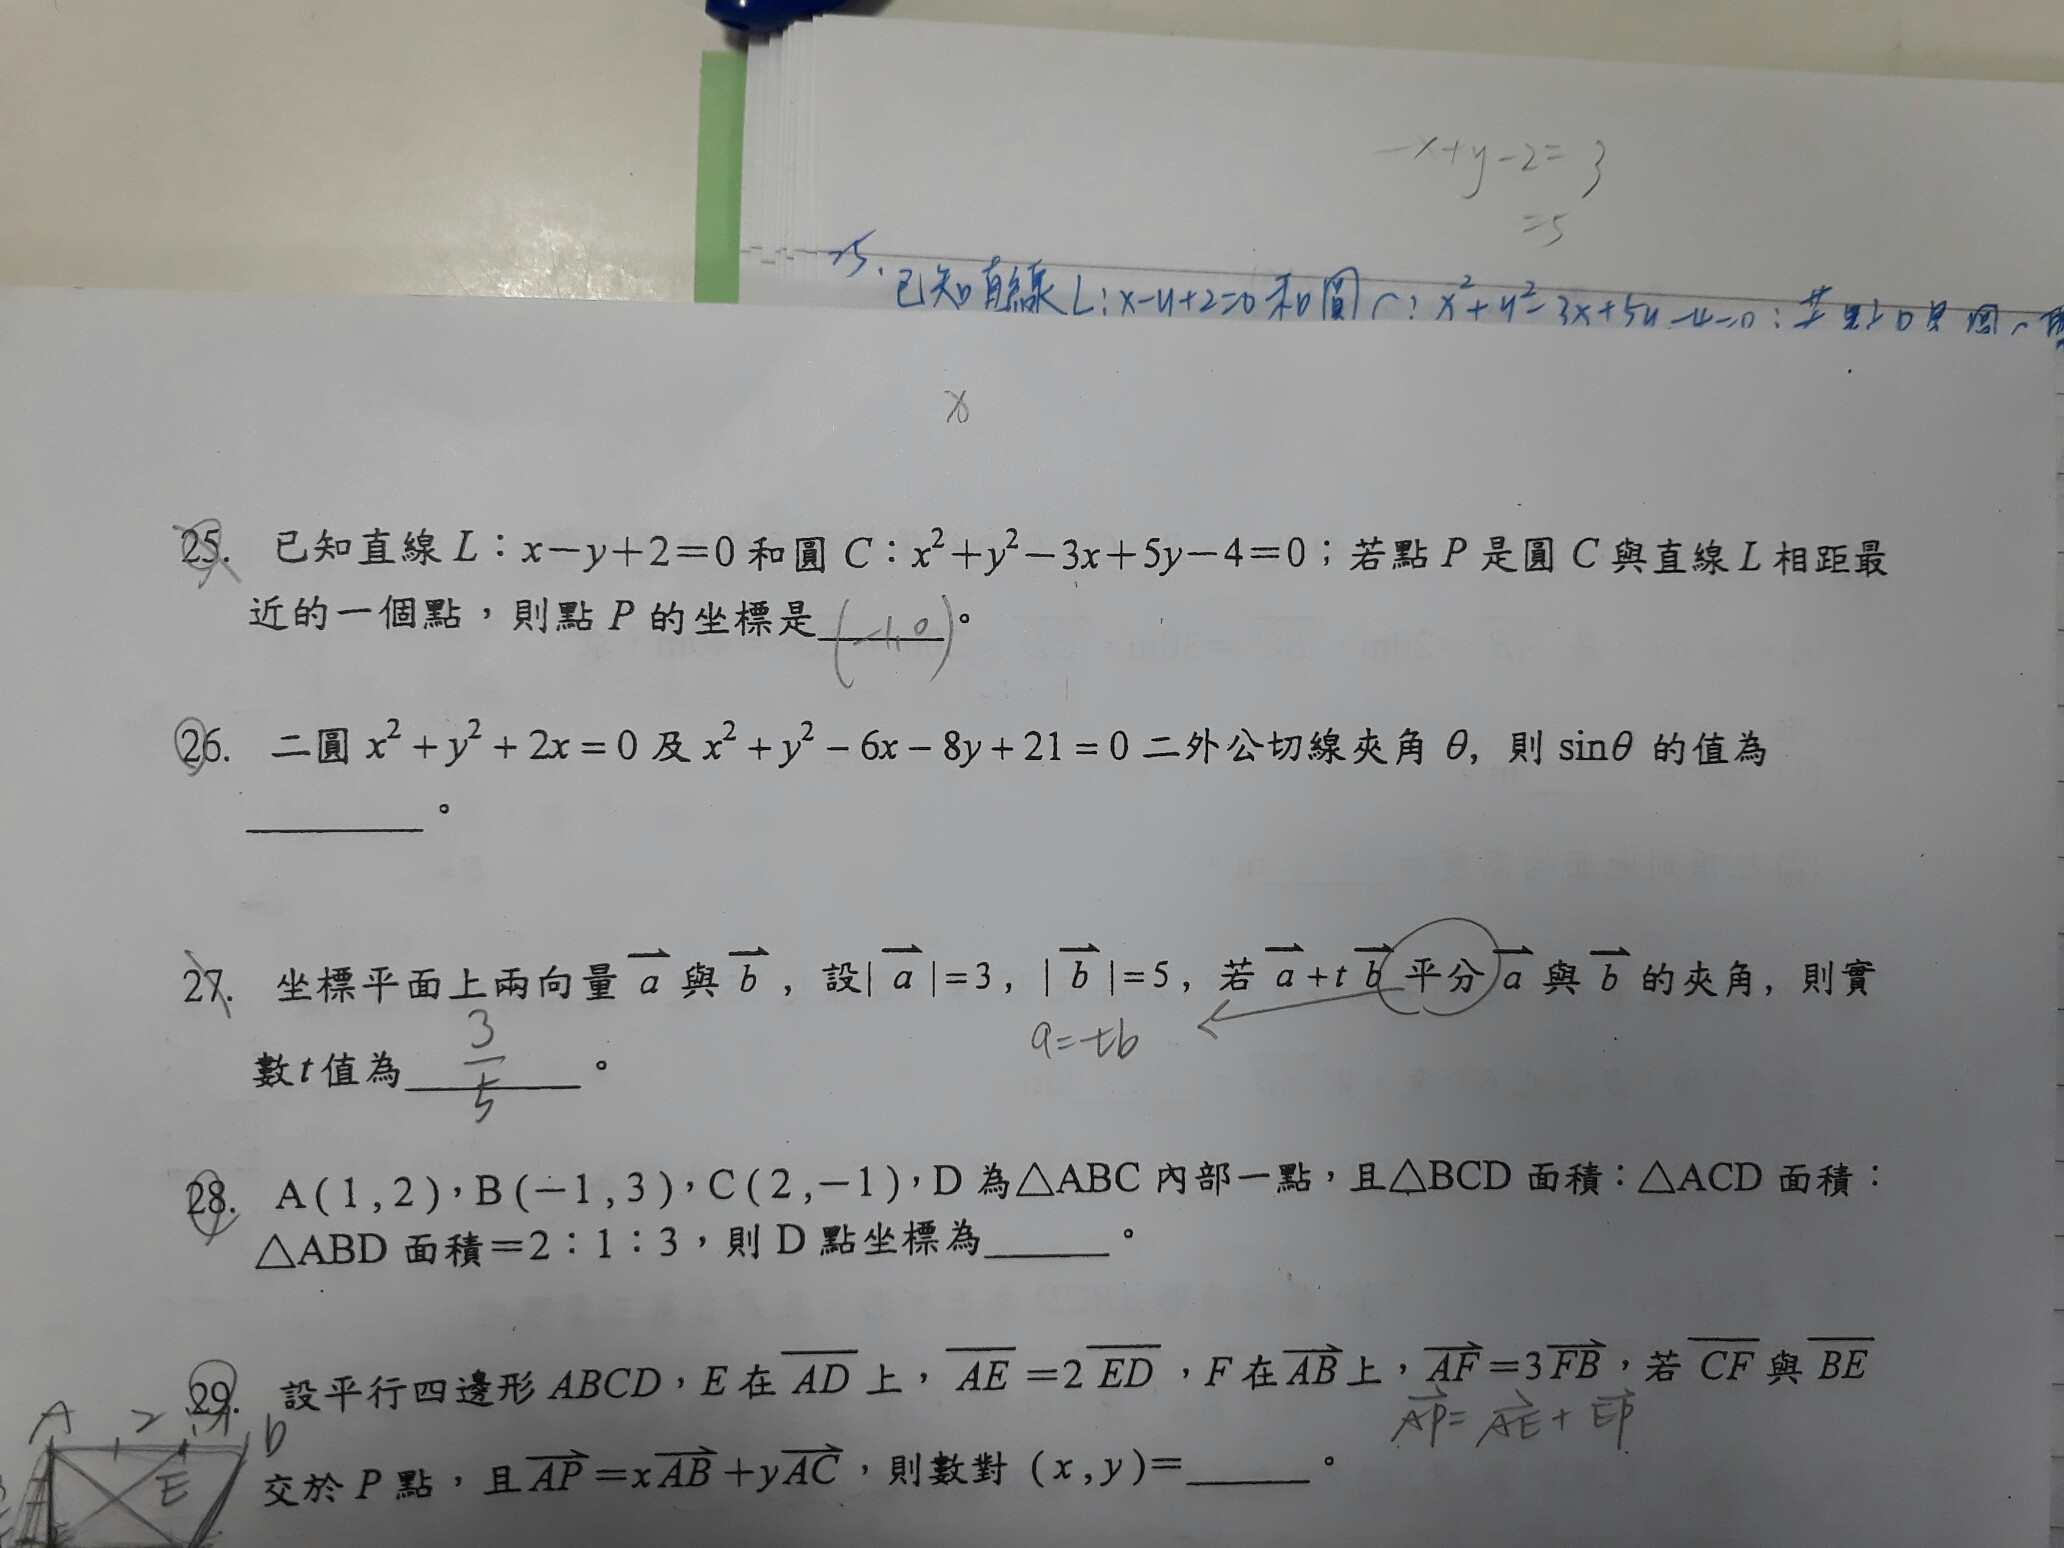 -x+y-2=3
=5
25. 已知直線L:x-y+2=0和圓C:x²+y²-3x+5y-4=0;若點P是圓C
x
25. 已知直線 L:x-y+2=0 和圓 C:x²+y²-3x+5y-4=0;若點 P 是圓 C 與直線 L 相距最
近的一個點,則點 P 的坐標是(-1,0)。
26. 二圓 x²+y²+2x=0 及 x²+y²-6x-8y+21=0 二外公切線夾角 θ, 則 sinθ 的值為
______。
27. 坐標平面上兩向量 a⃗ 與 b⃗ , 設| a⃗ |=3, | b⃗ |=5, 若 a⃗+t b⃗ 平分 a⃗ 與 b⃗ 的夾角, 則實
a=tb
數t值為 3/5 。
28. A(1,2),B(-1,3),C(2,-1),D 為△ABC 內部一點,且△BCD 面積:△ACD 面積:
△ABD 面積=2:1:3,則 D 點坐標為______。
29. 設平行四邊形 ABCD,E 在 A̅D̅ 上, A̅E̅=2E̅D̅,F 在 AB⃗ 上,AF⃗=3FB⃗,若 C̅F̅ 與 B̅E̅
AP⃗=AE⃗+EP⃗
交於 P 點,且AP⃗=xAB⃗+yAC⃗,則數對 (x,y)=______。
A 2 1 D
E